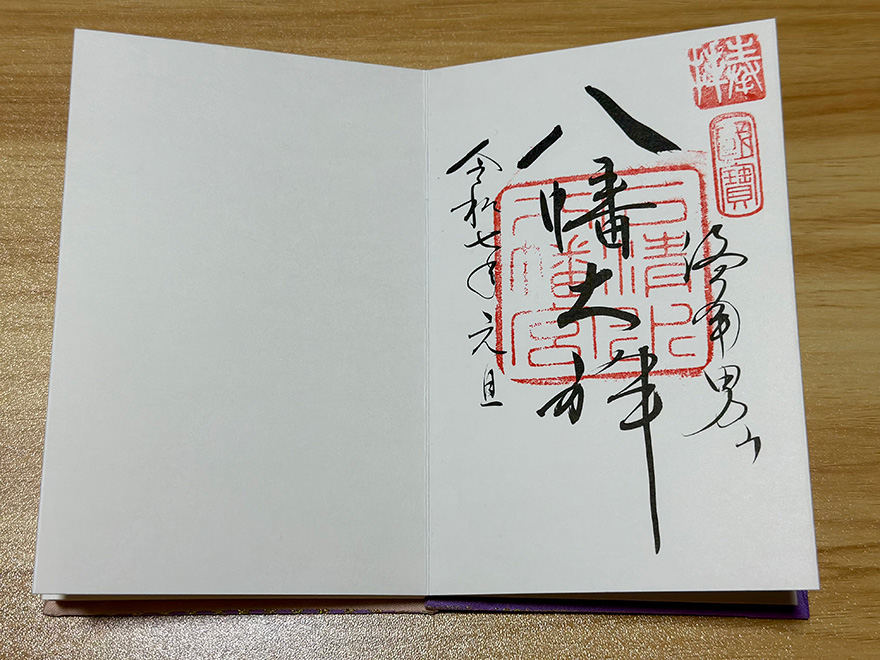 奉拝
國寶
洛南男山
八幡大神
石清水
八幡宮
令和七年元旦